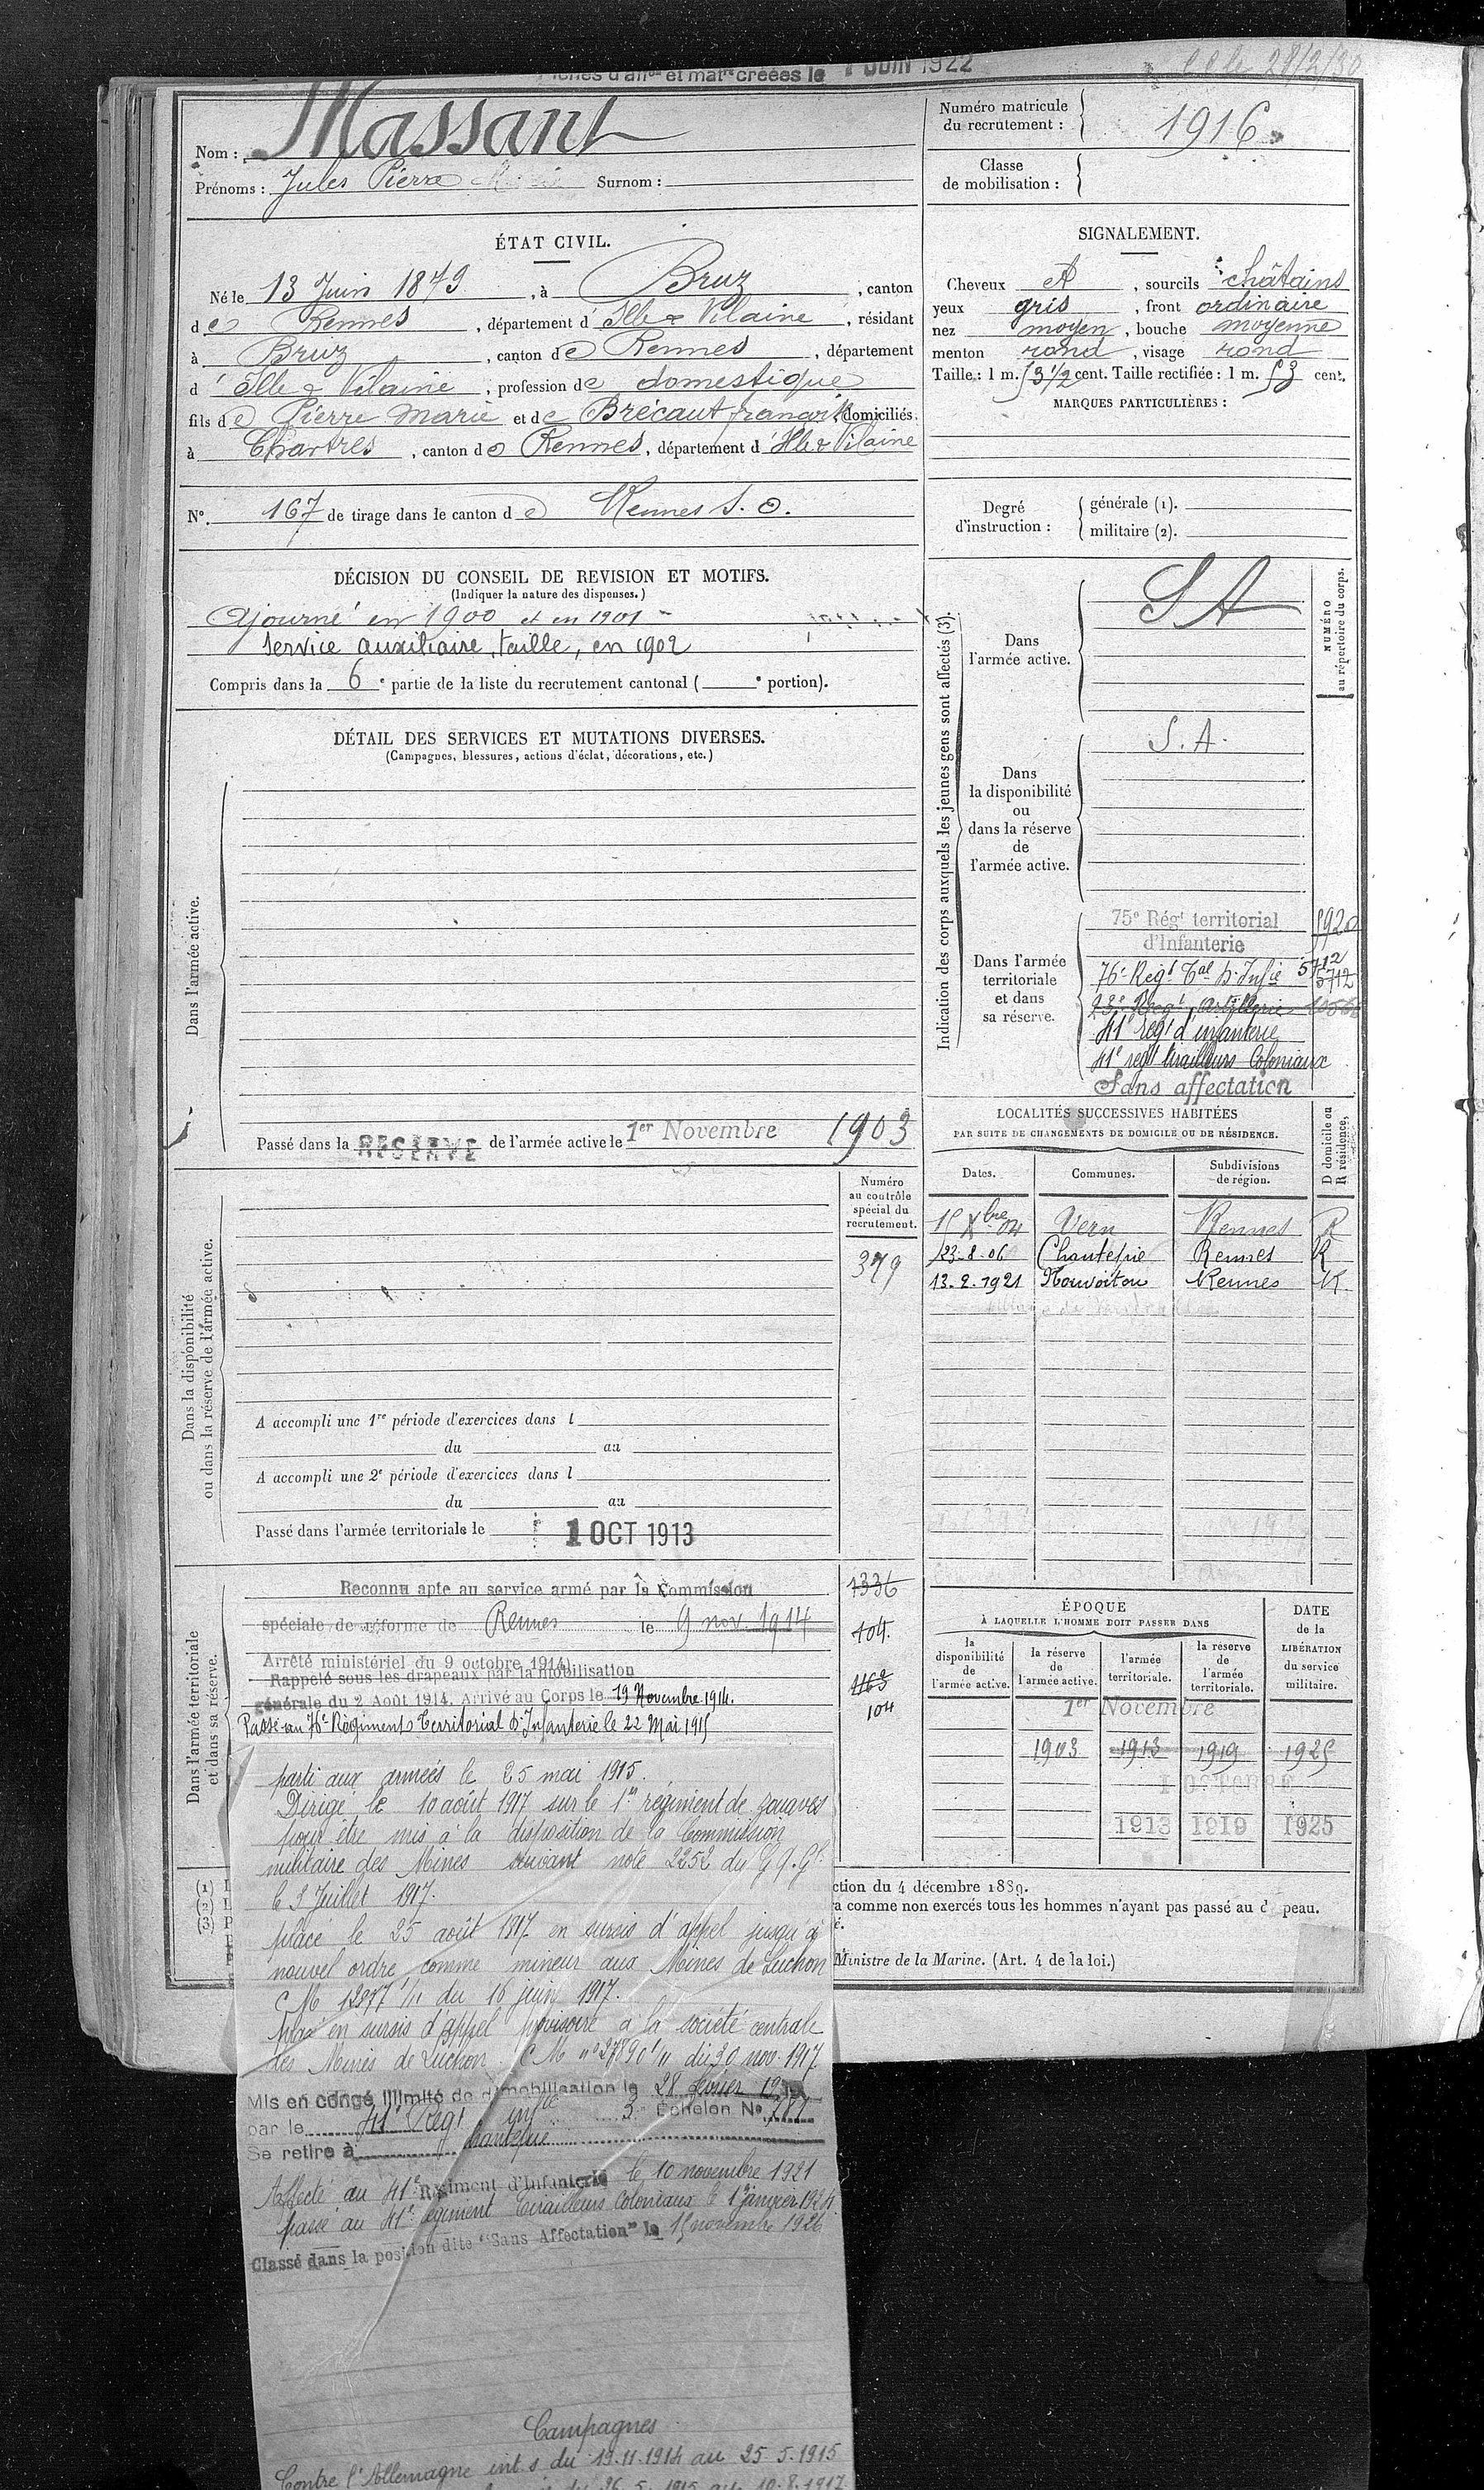 Fiches d'affon et matre créées le 1 JUIN 1922
CC le 28/2/30
Nom : Massant
Prénoms : Jules Pierre Surnom :
Numéro matricule
du recrutement : 1916
Classe
de mobilisation :
ÉTAT CIVIL.
Né le 13 Juin 1879, à Bruz, canton
de Rennes, département d'Ille & Vilaine, résidant
à Bruz, canton de Rennes, département
d'Ille & Vilaine, profession de domestique
fils de Pierre Marie et de Brécaut domiciliés
à Chartres, canton de Rennes, département d'Ille & Vilaine
N°. 167 de tirage dans le canton de Rennes S. O.
SIGNALEMENT.
Cheveux et, sourcils châtains
yeux gris, front ordinaire
nez moyen, bouche moyenne
menton rond, visage rond
Taille : 1 m. 53 1/2 cent. Taille rectifiée : 1 m. 53 cent.
MARQUES PARTICULIÈRES :
Degré
d'instruction :
générale (1).
militaire (2).
DÉCISION DU CONSEIL DE REVISION ET MOTIFS.
(Indiquer la nature des dispenses.)
Ajourné en 1900 et en 1901 -
Service auxiliaire, taille, en 1902
Compris dans la 6e partie de la liste du recrutement cantonal ( e portion).
DÉTAIL DES SERVICES ET MUTATIONS DIVERSES.
(Campagnes, blessures, actions d'éclat, décorations, etc.)
Dans l'armée active.
Passé dans la RÉSERVE de l'armée active le 1er Novembre 1903
Indication des corps auxquels les jeunes gens sont affectés (3).
NUMÉRO
au répertoire du corps.
Dans
l'armée active.
S A
Dans
la disponibilité
ou
dans la réserve
de
l'armée active.
S. A.
Dans l'armée
territoriale
et dans
sa réserve.
75e Régt territorial 5920
d'Infanterie
76e Régt Tal d'Infie 5712
5712
23e Régt Artillerie
41e régt d'infanterie
41e regt tirailleurs Coloniaux
Sans affectation
LOCALITÉS SUCCESSIVES HABITÉES
PAR SUITE DE CHANGEMENTS DE DOMICILE OU DE RÉSIDENCE.
D domicile ou
R résidence.
Dates. Communes. Subdivisions
de région.
15 Xbre 04 Vern Rennes R
23-8-06 Chantepie Rennes R
13-2-1921 Nouvoitou Rennes R.
Dans la disponibilité
ou dans la réserve de l'armée active.
Numéro
au contrôle
spécial du
recrutement.
379
A accompli une 1re période d'exercices dans l
du au
A accompli une 2e période d'exercices dans l
du au
Passé dans l'armée territoriale le 1 OCT 1913
Dans l'armée territoriale
et dans sa réserve.
Reconnu apte au service armé par la Commission
spéciale de réforme de Rennes le 9 nov. 1914
Arrêté ministériel du 9 octobre 1914)
Rappelé sous les drapeaux par la mobilisation
générale du 2 Août 1914. Arrivé au Corps le 19 Novembre 1914.
Passé au 76e Régiment Territorial d'Infanterie le 22 Mai 1915
1336
104.
1163
104
ÉPOQUE
À LAQUELLE L'HOMME DOIT PASSER DANS
la
disponibilité
de
l'armée active.
la réserve
de
l'armée active.
l'armée
territoriale.
la réserve
de
l'armée
territoriale.
DATE
de la
LIBÉRATION
du service
militaire.
1er Novembre
1903 1913 1919 1925
1 OCTOBRE
1913 1919 1925
parti aux armées le 25 mai 1915.
Dirigé le 10 août 1917 sur le 1er régiment de zouaves
pour être mis à la disposition de la Commission
militaire des Mines suivant note 2252 du G.Q.Gl
le 5 Juillet 1917.
placé le 25 août 1917 en sursis d'appel jusqu'à
nouvel ordre comme mineur aux Mines de Luchon
C M 12977 1/11 du 16 juin 1917.
en sursis d'appel provisoire à la société centrale
des Mines de Luchon. C M n° 27890 1/11 du 30 nov. 1917
Mis en congé illimité de démobilisation le 28 février 1919
par le 41e Régt infie 3e Echelon N° 281
Se retire à Chantepie
Affecté au 41e Régiment d'Infanterie le 10 novembre 1921
passé au 41e régiment Tirailleurs Coloniaux le 1er janvier 1924
Classé dans la position dite "Sans Affectation" le 15 novembre 1926
(1)
(2)
(3)
ction du 4 décembre 1889.
a comme non exercés tous les hommes n'ayant pas passé au d peau.
é.
Ministre de la Marine. (Art. 4 de la loi.)
Campagnes
Contre l'Allemagne int. s du 19.11.1914 au 25.5.1915
du 26.5.1915 au 10.8.1917